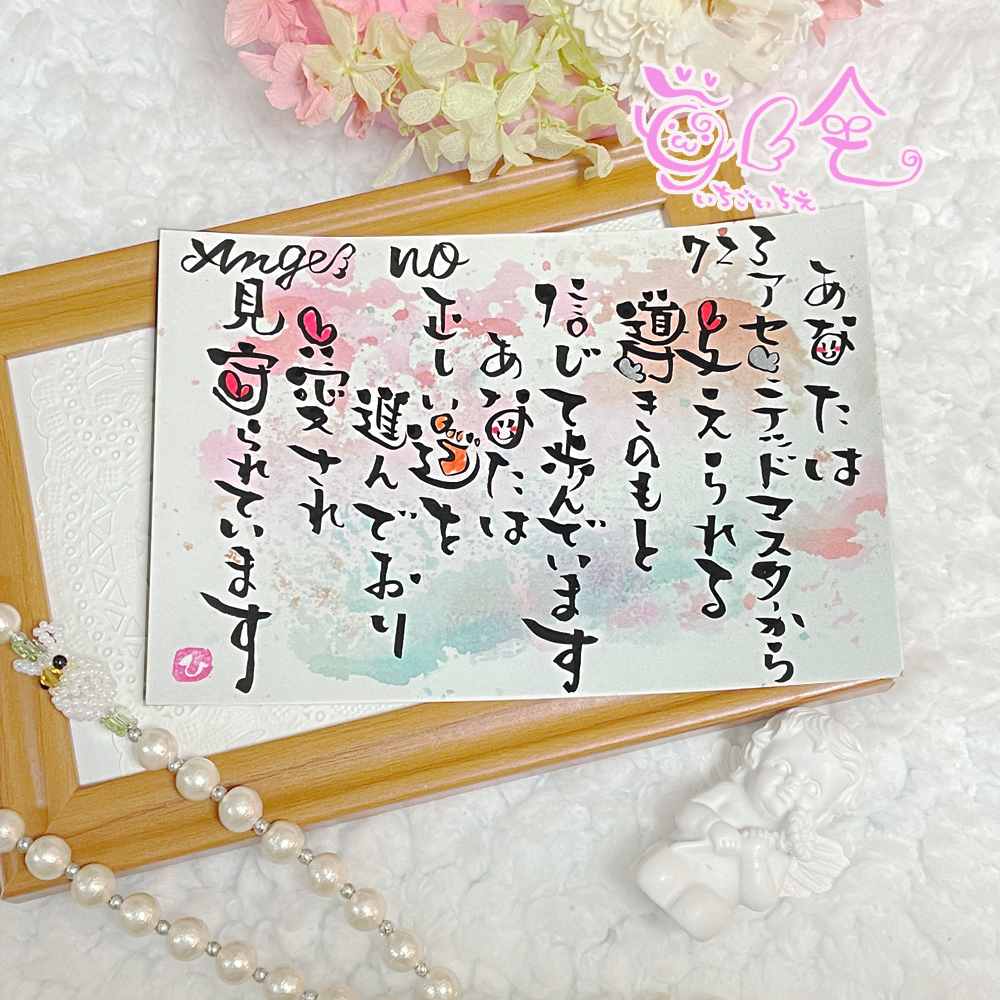 いちごいちえ
Angel no 723
あなたは
アセンデッドマスターから
支えられる
導きのもと
信じて歩んでいます
あなたは
正しい道を
進んでおり
愛され
見守られています